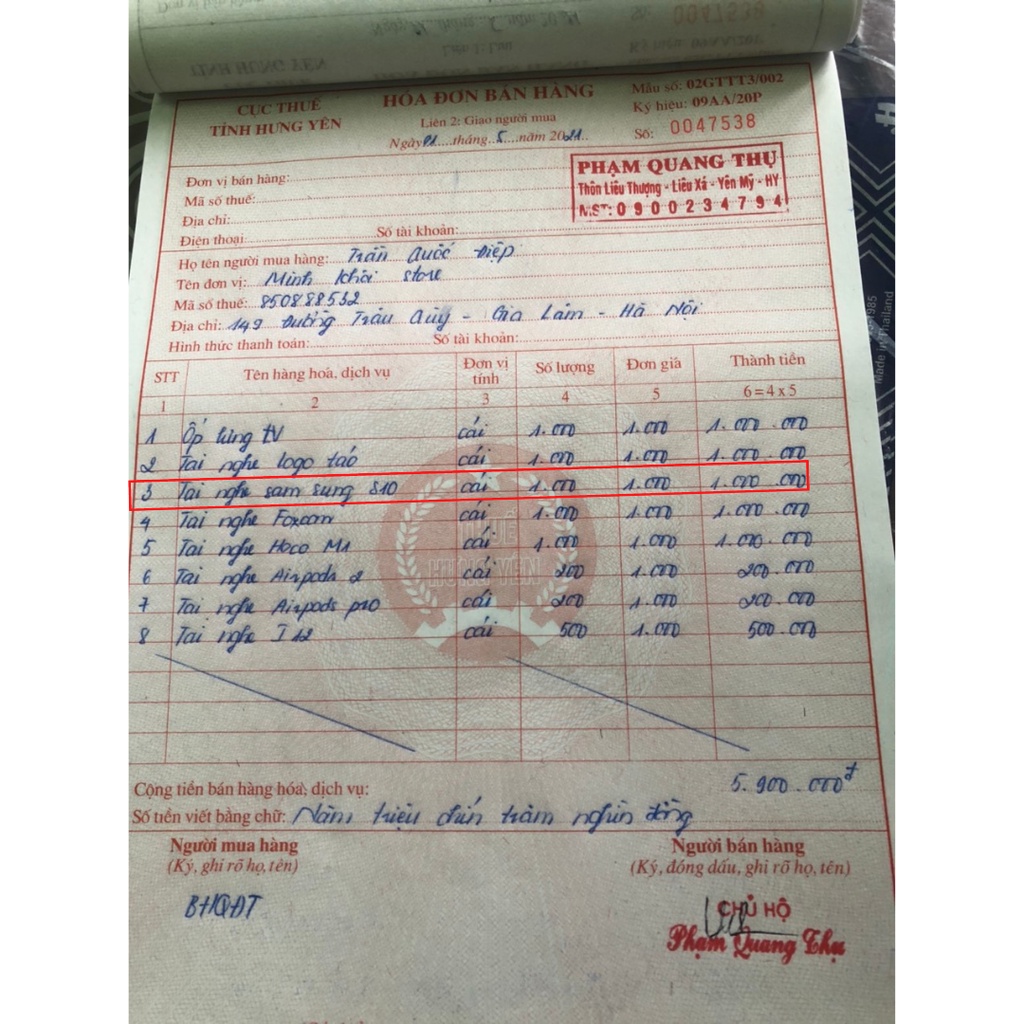 CỤC THUẾ
TỈNH HƯNG YÊN
HÓA ĐƠN BÁN HÀNG
Liên 2: Giao người mua
Ngày 01 tháng 5 năm 2021
Mẫu số: 02GTTT3/002
Ký hiệu: 09AA/20P
Số: 0047538
PHẠM QUANG THỤ
Thôn Liêu Thượng - Liêu Xá - Yên Mỹ - HY
MST: 0900234794
Đơn vị bán hàng:
Mã số thuế:
Địa chỉ:
Điện thoại: Số tài khoản:
Họ tên người mua hàng: Trần Quốc Điệp
Tên đơn vị: Minh Khải store
Mã số thuế: 850888532
Địa chỉ: 149 Đường Trâu Quỳ - Gia Lâm - Hà Nội
Hình thức thanh toán: Số tài khoản:
STT Tên hàng hoá, dịch vụ Đơn vị tính Số lượng Đơn giá Thành tiền
1 2 3 4 5 6 = 4 x 5
1 Ốp lưng tv cái 1.000 1.000 1.000.000
2 Tai nghe logo táo cái 1.000 1.000 1.000.000
3 Tai nghe sam sung S10 cái 1.000 1.000 1.000.000
4 Tai nghe Foxcom cái 1.000 1.000 1.000.000
5 Tai nghe Hoco M1 cái 1.000 1.000 1.000.000
6 Tai nghe Airpods 2 cái 200 1.000 200.000
7 Tai nghe Airpods p10 cái 200 1.000 200.000
8 Tai nghe I 12 cái 500 1.000 500.000
THUẾ
HƯNG YÊN
Cộng tiền bán hàng hóa, dịch vụ: 5.900.000đ
Số tiền viết bằng chữ: Năm triệu chín trăm nghìn đồng
Người mua hàng
(Ký, ghi rõ họ, tên)
BHQĐT
Người bán hàng
(Ký, đóng dấu, ghi rõ họ, tên)
CHỦ HỘ
Phạm Quang Thụ
Made in Thailand